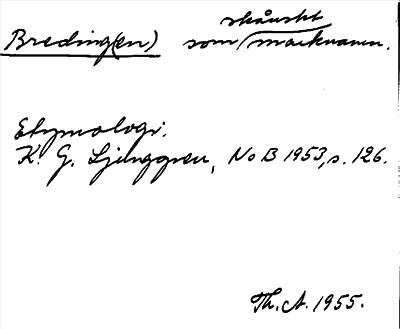 Breding(en) som skånskt marknamn.
Etymologi.
K. G. Ljunggren, NoB 1953, s. 126.
Th. A. 1955.